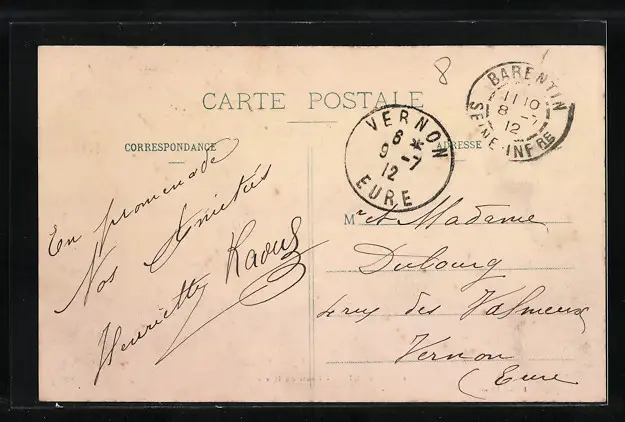 8
CARTE POSTALE
CORRESPONDANCE
ADRESSE
BARENTIN
11 10
8 -7
12
SEINE-INFRE
VERNON
6 *
9 -7
12
EURE
En promenade
Nos Amitiés
Henriette Raoul
Mr et Madame
Dubourg
4 rue des Valmeux
Vernon
(Eure